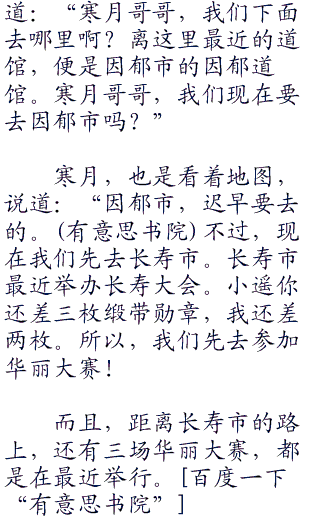 道：“寒月哥哥，我们下面
去哪里啊？离这里最近的道
馆，便是因郁市的因郁道
馆。寒月哥哥，我们现在要
去因郁市吗？”
寒月，也是看着地图，
说道：“因郁市，迟早要去
的。(有意思书院) 不过，现
在我们先去长寿市。长寿市
最近举办长寿大会。小遥你
还差三枚缎带勋章，我还差
两枚。所以，我们先去参加
华丽大赛！
而且，距离长寿市的路
上，还有三场华丽大赛，都
是在最近举行。[百度一下
“有意思书院”]